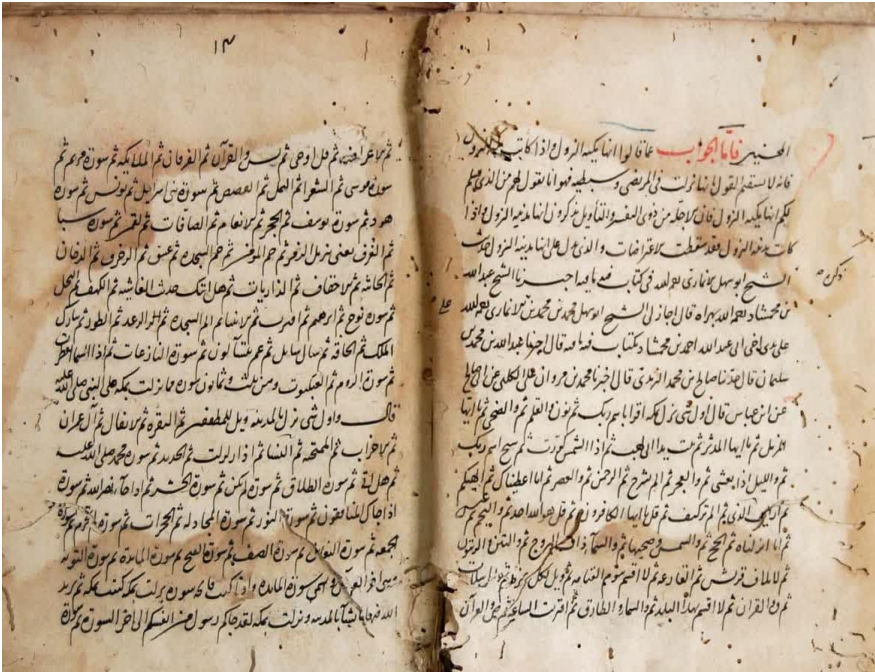 فاما الجواب عما قالوا انها مكية النزول واذا كانت مدنية النزول
فانه لا يستقيم القول انها نزلت في المرتضى وسبطيه فهو انا نقول لهم من الذي سلم
لكم انها مكية النزول فان الاجلة من ذوي التفسير والتأويل يذكرون انها مدنية النزول واذا
كانت مدنية النزول فقد سقطت الاعتراضات والذي يدل على انها مدنية النزول حديث
الشيخ ابو سهل الانماري رحمه الله في كتاب فيه ما فيه اخبرنا الشيخ عبد الله
بن محمشاد رحمه الله بهراة قال اجازني الشيخ ابو سهل محمد بن محمد بن الانماري رحمه الله
على يدي اخي ابي عبد الله احمد بن محمشاد بكتاب فيه ما فيه قال اخبرنا عبد الله بن محمد بن
سليمان قال حدثنا صالح بن محمد الترمذي قال اخبرنا محمد بن مروان عن الكلبي عن ابي صالح
عن ابن عباس قال اول شي نزل بمكة اقرا باسم ربك ثم نون والقلم ثم والضحى ثم يا ايها
المزمل ثم يا ايها المدثر ثم تبت يدا ابي لهب ثم اذا الشمس كورت ثم سبح اسم ربك
ثم والليل اذا يغشى ثم والفجر ثم الم نشرح ثم الرحمن ثم والعصر ثم انا اعطيناك ثم الهيكم
ثم ارايت الذي ثم الم تر كيف ثم قل يا ايها الكافرون ثم قل هو الله احد ثم والنجم ثم عبس
ثم انا انزلناه ثم والشمس وضحيها ثم والسما ذات البروج ثم والتين والزيتون
ثم لايلاف قريش ثم القارعة ثم لا اقسم بيوم القيامة ثم ويل لكل همزة ثم والمرسلات
ثم ق والقران ثم لا اقسم بهذا البلد ثم والسما والطارق ثم اقتربت الساعة ثم ص والقرآن
١٣
ثم الاعراف ثم قل اوحي ثم يس والقرآن ثم الفرقان ثم الملائكة ثم سورة مريم ثم
سورة موسى ثم الشعرا ثم النمل ثم القصص ثم سورة بني اسرايل ثم يونس ثم سورة
هود ثم سورة يوسف ثم الحجر ثم الانعام ثم الصافات ثم لقمن ثم سورة سبا
ثم الغرف يعني تنزيل الزمر ثم حم المومن ثم حم السجدة ثم عسق ثم الزخرف ثم الدخان
ثم الجاثية ثم الاحقاف ثم الذاريات ثم هل اتيك حديث الغاشية ثم الكهف ثم النحل
ثم سورة نوح ثم ابرهيم ثم اقتربت ثم الانبيا ثم الم السجدة ثم الرعد ثم الطور ثم تبارك
الملك ثم الحاقة ثم سال سايل ثم عم يتسالون ثم سورة النازعات ثم اذا السما انفطرت
ثم سورة الروم ثم العنكبوت وهن ثلث وثمانون سورة مما نزلت بمكة على النبي صلى الله عليه
قال واول شي نزل بالمدينة ويل للمطففين ثم البقرة ثم الانفال ثم آل عمران
ثم الاحزاب ثم الممتحنة ثم النسا ثم اذا زلزلت ثم الحديد ثم سورة محمد صلى الله عليه
ثم هل اتى ثم سورة الطلاق ثم سورة لم يكن ثم سورة الحشر ثم اذا جا نصر الله ثم سورة
اذا جاك المنافقون ثم سورة النور ثم سورة المجادلة ثم الحجرات ثم سورة لم تحرم ثم
الجمعة ثم سورة التغابن ثم سورة الصف ثم سورة الفتح ثم سورة المايدة ثم سورة التوبة
وهي اخر القرآن وهي سورة المايدة واذا كانت فاتحة سورة نزلت بمكة كتبت بمكة ثم يزيد
الله فيها ما يشآ بالمدينة ونزلت بمكة لقد جاكم رسول من انفسكم الى اخر السورة